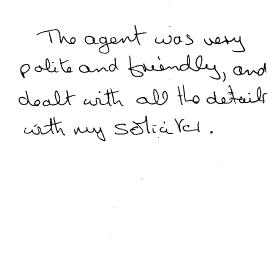 The agent was very
polite and friendly, and
dealt with all the details
with my solicitor.